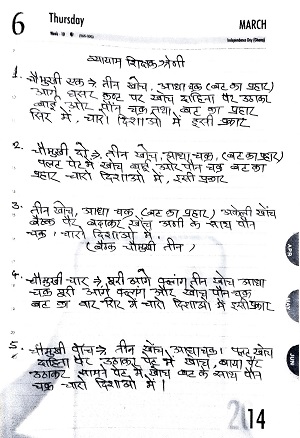 6 Thursday MARCH
Week 10 Independence Day (Ghana)
व्यायाम शिक्षक श्रेणी
1. चौमुखी एक → तीन खोंच, आधा चक्र (बट का प्रहार)
आगे पर खोंच दाहिना पैर उठाकर
बाई और तीन चक्र तथा बट का प्रहार
सिर में, चारो दिशाओ में इसी प्रकार
2. चौमुखी दो → तीन खोंच, आधा चक्र, (बट का प्रहार)
पलट पेट में खोंच बाई और पौन चक्र बट का
प्रहार चारो दिशाओ में, इसी प्रकार
3. तीन खोंच, आधा चक्र (बट का प्रहार) अकेली खोंच
बैठक पैर बढ़ाकर खोंच के साथ पौन
चक्र, चारो दिशाओ में।
(चौमुखी तीन)
4. चौमुखी चार → पूरी आगे फलांग तीन खोंच आधा
चक्र पूरी आगे फलांग और खोंच पौन चक्र
बट का वार सिर में चारो दिशाओ में इसी प्रकार
5. चौमुखी पाँच → तीन खोंच आधा चक्र। पलट खोंच
दाहिना पैर उठाकर पेट में खोंच, बाया पैर
उठाकर सामने पेट में खोंच बट के साथ पौन
चक्र चारो दिशाओ में।
2014